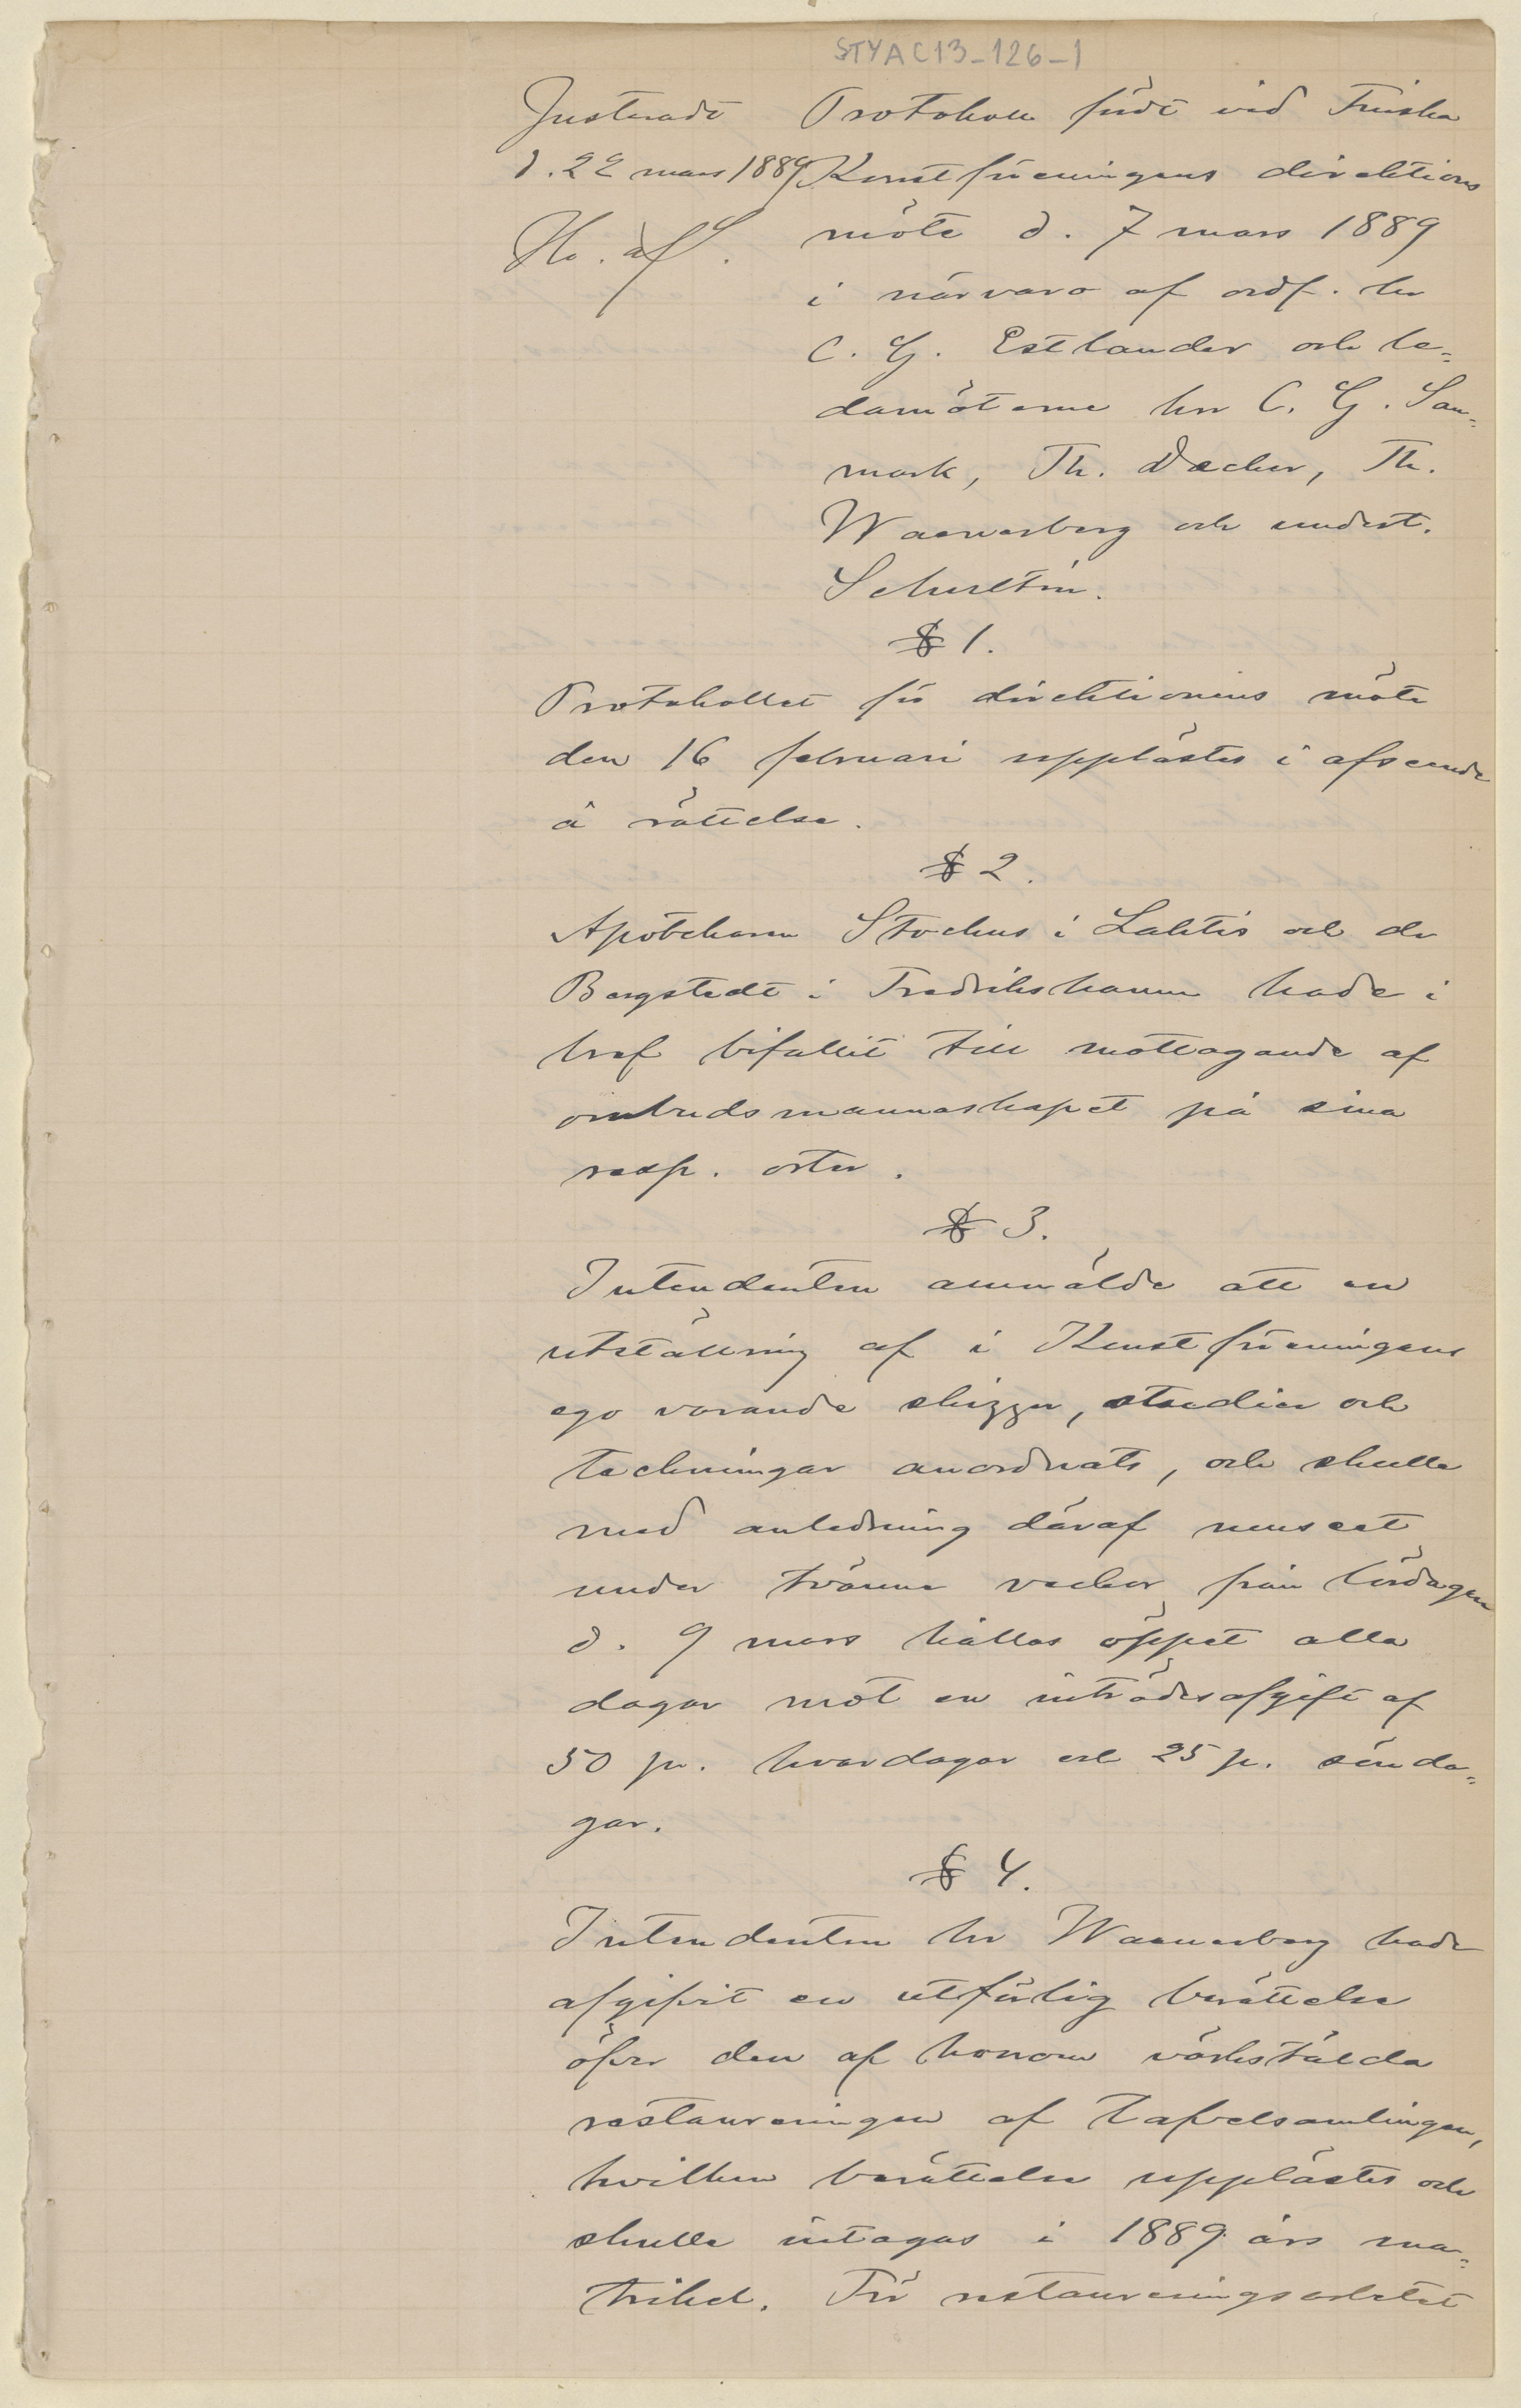 STYAC13-126-1
Justeradt
d. 22 mars 1889
Protokoll fördt vid Finska
Konstföreningens direktions
möte d. 7 mars 1889
i närvaro af ordf. hr
C. G. Estlander och le-
damöterne hrr C. G. San-
mark, Th. Decker, Th.
Waenerberg och undert.
Schultén.
§ 1.
Protokollet för direktionens möte
den 16 februari upplästes i afseende
å rättelse.
§ 2.
Apotekaren Stockus i Lahtis och dr
Bergstedt i Fredrikshamn hade i
bref bifallit till mottagande af
ombudsmannaskapet på sina
resp. orter.
§ 3.
Intendenten anmälde att en
utställning af i Konstföreningens
ego varande skizzer, studier och
teckningar anordnats, och skulle
med anledning däraf museet
under tvänne veckor från lördagen
d. 9 mars hållas öppet alla
dagar mot en inträdesafgift af
50 p. hvardagar och 25 p. sönda-
gar.
§ 4.
Intendenten hr Waenerberg hade
afgifvit en utförlig berättelse
öfver den af honom värkstälda
restaureringen af tafvelsamlingen,
hvilken berättelse upplästes och
skulle intagas i 1889 års ma-
trikel. För restaureringsarbetet